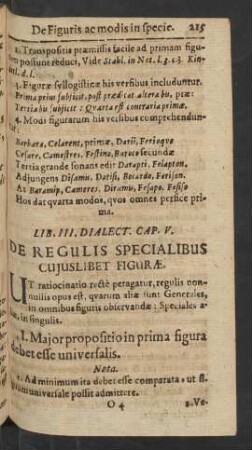 De Figuris ac modis in specie. 215
2. Transpositis præmissis facile ad primam figu-
ram possunt reduci, Vide Stahl. in Not. l. 3. c. 3. Kin-
d. l.
3. Figuræ syllogisticæ his versibus includuntur.
Prima prius subjicit, post prædicat altera bis, præ:
Tertia bis subjicit: Quarta est contraria primæ,
4. Modi figurarum his versibus comprehendun-
tur:
Barbara, Celarent, primæ, Darii, Ferioque
Cesare, Camestres, Festino, Baroco secundæ
Tertia grande sonans edit Darapti, Felapton,
Adjungens Disamis, Datisi, Bocardo, Ferison.
At Baramip, Cameres, Dimatis, Fesapo, Fesiso
Hos dat quarta modos, quos omnes perfice pri-
ma.
LIB. III. DIALECT. CAP. V.
DE REGULIS SPECIALIBUS
CUJUSLIBET FIGURÆ.
UT ratiocinatio recte peragatur, regulis non-
nullis opus est, quarum aliæ sunt Generales,
in omnibus figuris observandæ: Speciales a-
liæ, in singulis.
1. Major propositio in prima figura
debet esse universalis.
Nota.
1. Ad minimum ita debet esse comparata, ut si-
gnum universale possit admittere.
O 4
2. Ve-